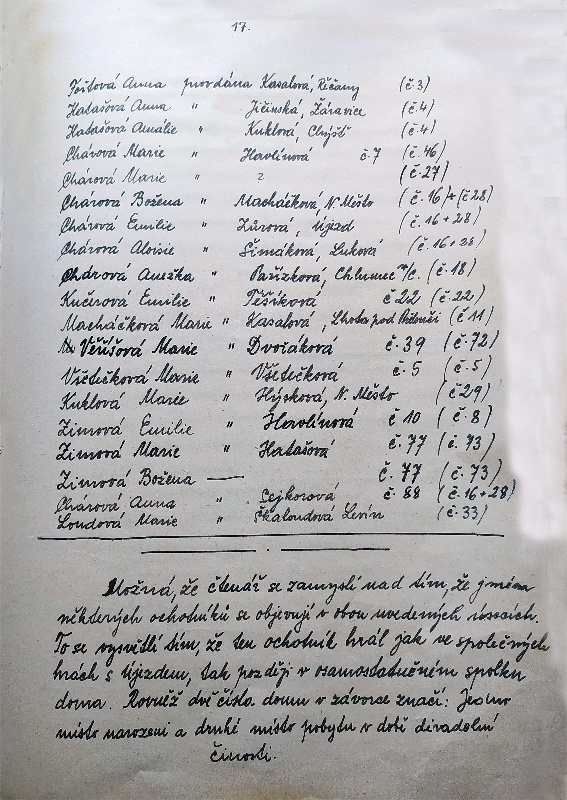 17.
Foltová Anna provdána Kasalová, Říčany (č.3)
Hatašová Anna " Jičínská, Žáravice (č.4)
Hatašová Amálie " Kuklová, Chýšť (č.4)
Chárová Marie " Havlínová č.7 (č.46)
Chárová Marie " ? (č.27)
Chárová Božena " Macháčková, N. Město (č.16)+(č28)
Chárová Emilie " Zůrová, Újezd (č.16+28)
Chárová Aloisie " Šimáková, Luková (č.16+28)
Chárová Anežka " Pařízková, Chlumec n/c. (č.18)
Kučerová Emilie " Těšíková č.22 (č.22)
Macháčková Marie " Kasalová, Lhota pod (č 11)
Veřišová Marie " Dvořáková č.39 (č.72)
Všetečková Marie " Všetečková č.5 (č.5)
Kuklová Marie " Hýsková, N. Město (č29)
Zimová Emilie " Havlínová č 10 (č.8)
Zimová Marie " Hatašová č.77 (č.73)
Zimová Božena — č.77 (č.73)
Chárová Anna " Cejkorová č.88 (č.16+28)
Loudová Marie " Škaloudová Levín (č.33)
Možná, že čtenář se zamyslí nad tím, že jména
některých ochotníků se objevují v obou uvedených úsecích.
To se vysvětlí tím, že ten ochotník hrál jak ve společných
hrách s Újezdem, tak později v osamostatněném spolku
doma. Rovněž dvě čísla domu v závorce značí: Jedno
místo narození a druhé místo pobytu v době divadelní
činosti.